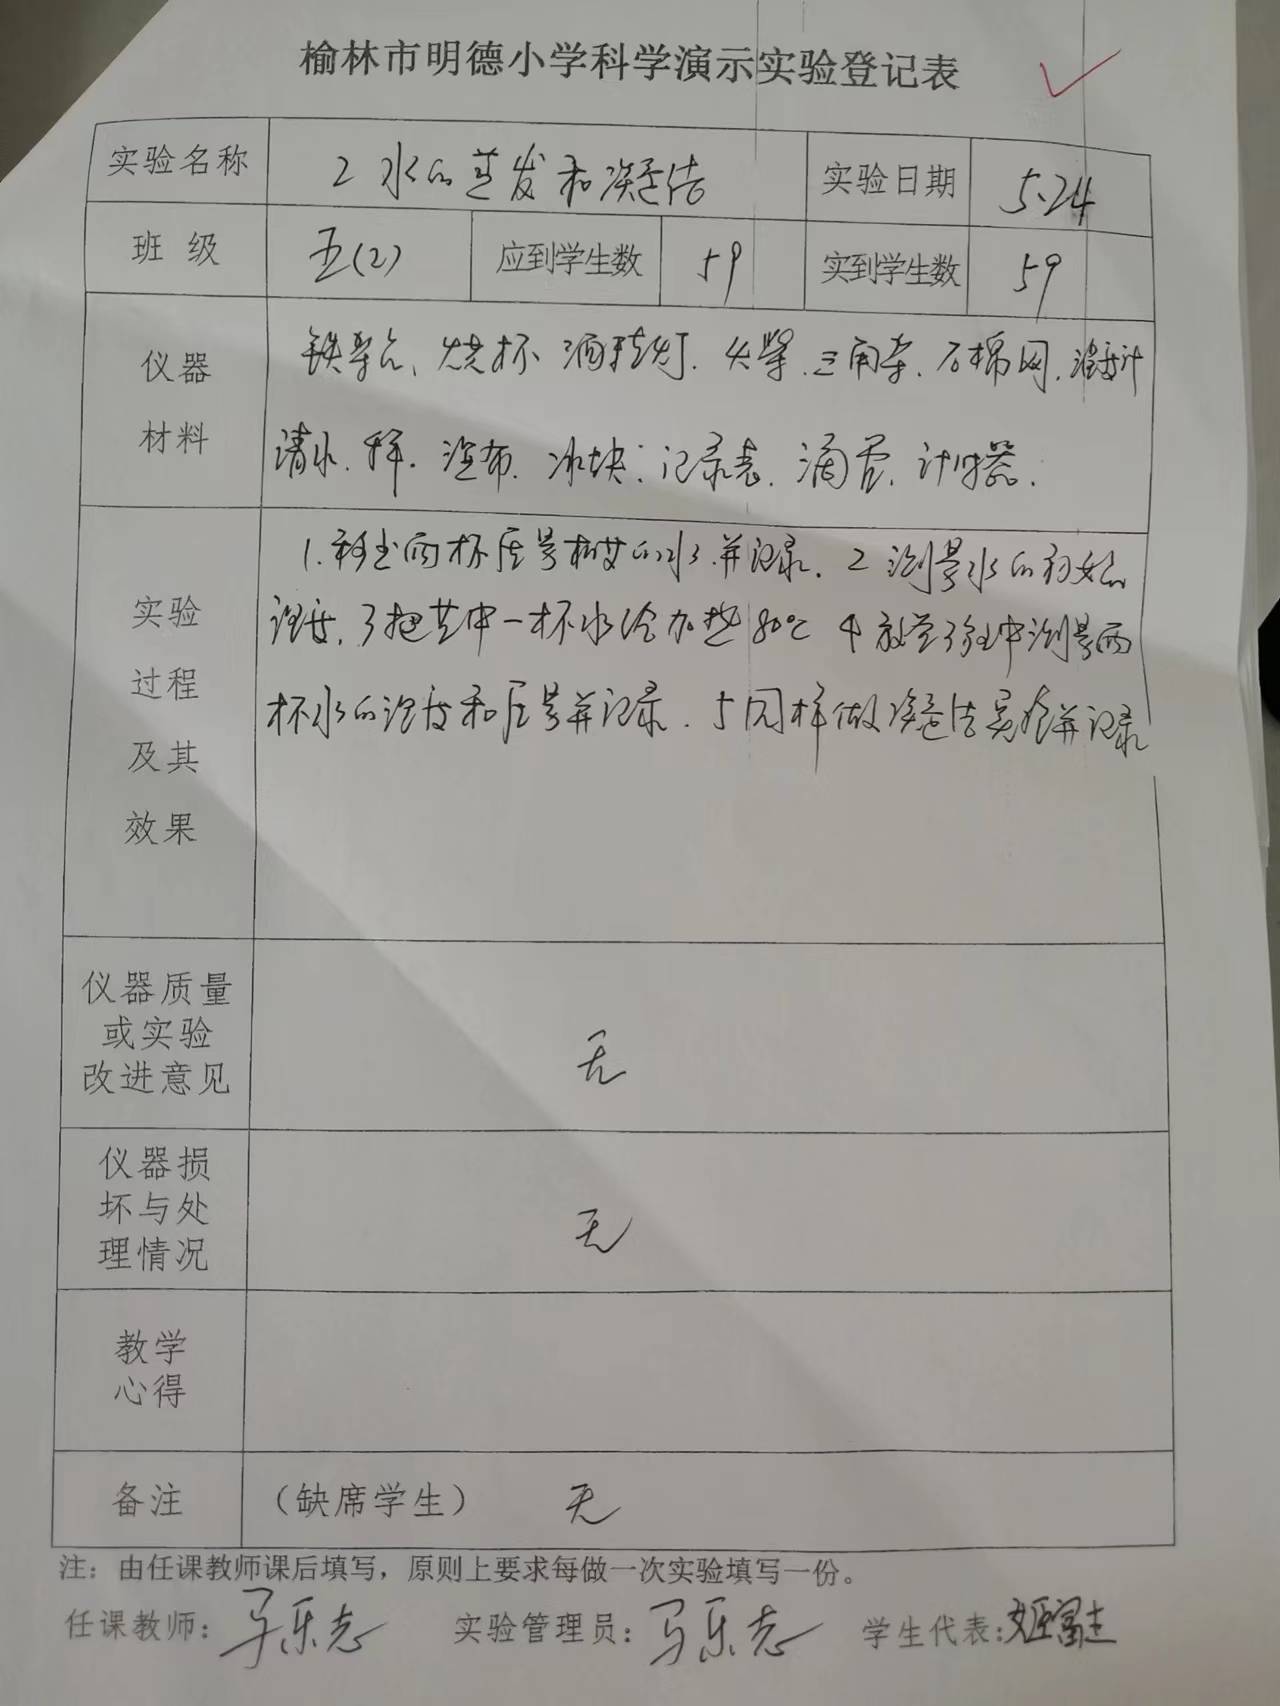 榆林市明德小学科学演示实验登记表
实验名称 2 水的蒸发和凝结 实验日期 5.24
班 级 五(2) 应到学生数 59 实到学生数 59
仪器
材料
铁架台、烧杯 酒精灯、火柴、三角架、石棉网、温度计
清水、秤、湿布、冰块、记录表、滴管、计时器.
实验
过程
及其
效果
1.称出两杯质量相等的水,并记录. 2 测量水的初始
温度, 3 把其中一杯水给加热80℃ 4 放置过程中测量两
杯水的温度和质量并记录. 5 同样做凝结实验并记录
仪器质量
或实验
改进意见
无
仪器损
坏与处
理情况
无
教学
心得
备注 (缺席学生) 无
注：由任课教师课后填写，原则上要求每做一次实验填写一份。
任课教师：马乐志 实验管理员：马乐志 学生代表：姬富志